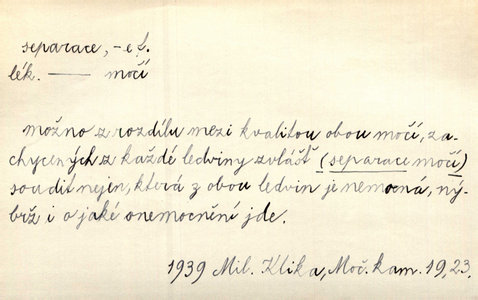 separace, -e f.
lék. —— močí
možno z rozdílu mezi kvalitou obou močí, za-
chycených z každé ledviny zvlášť (separace močí)
soudit nejen, která z obou ledvin je nemocná, ný-
brž i o jaké onemocnění jde.
1939 Mil. Klika, Moč. kam. 19, 23.